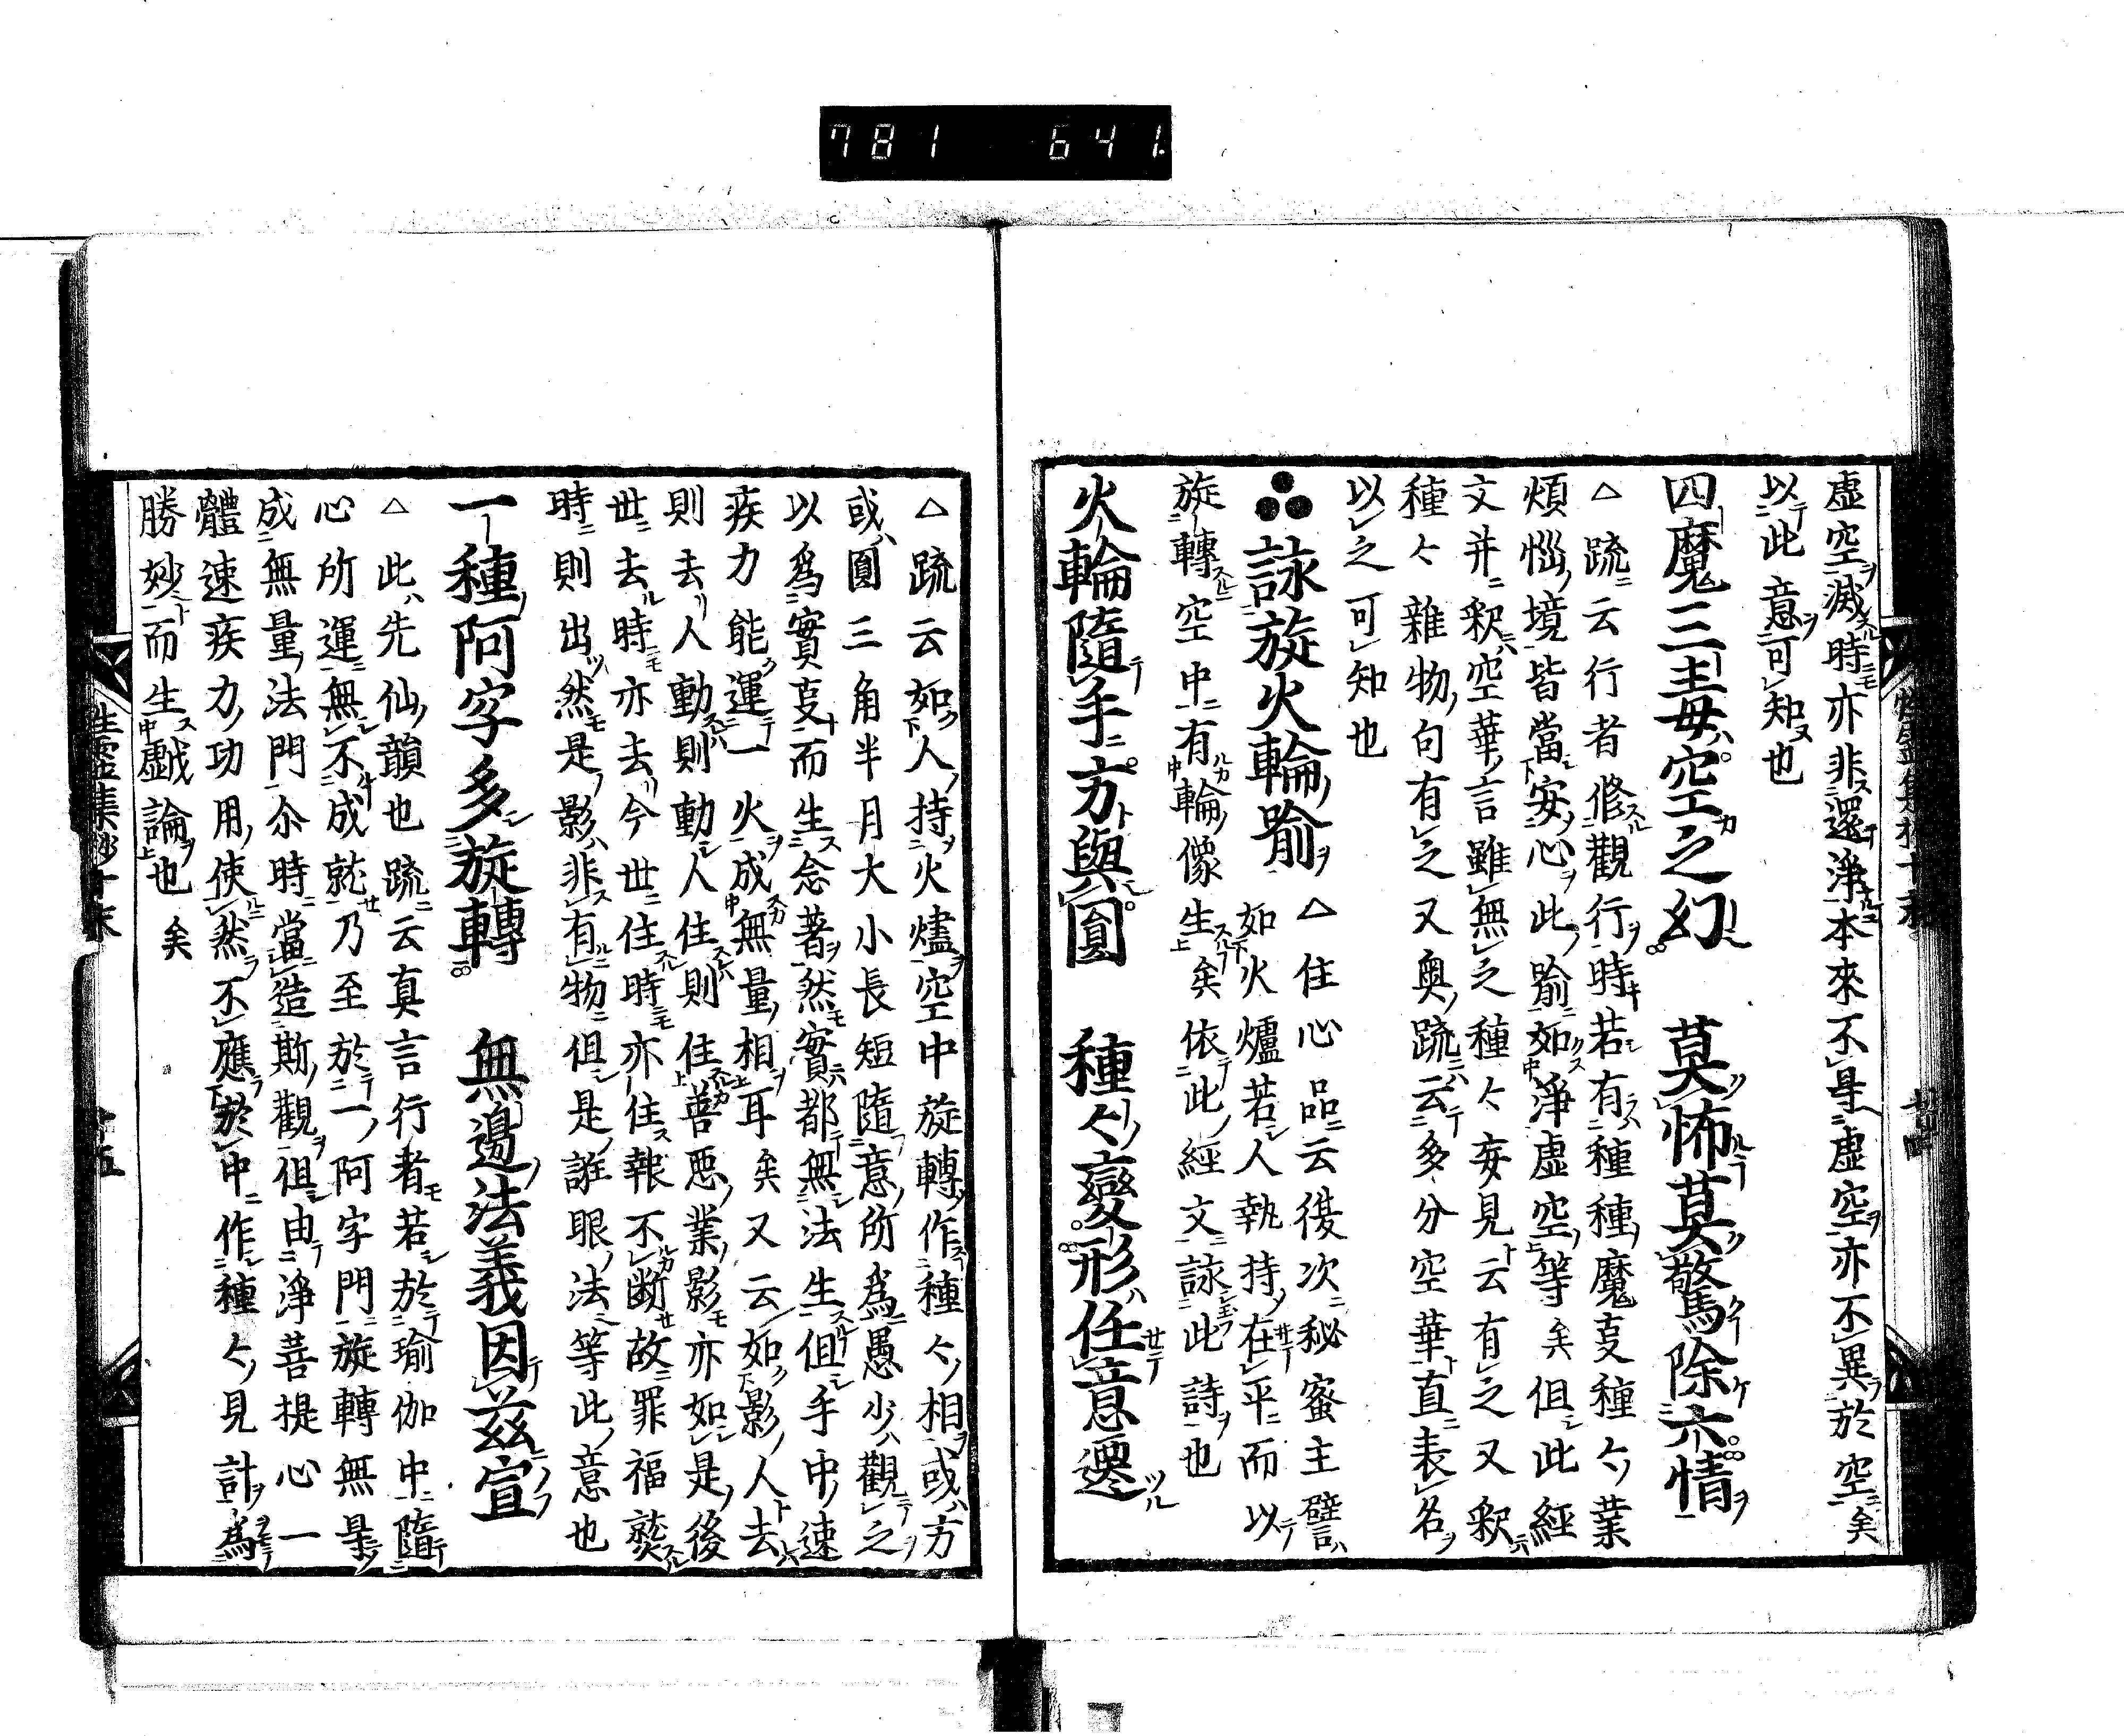 781 641.
虚空滅時亦非還淨本來不異虚空亦不異於空矣
以此意可知也
四魔三毒空之幻 莫怖莫驚除六情
△疏云行者修觀行時若有種種魔事種々業
煩惱境皆當安心此喩如淨虚空等矣但此經
文并釈空華言雖無之種々妄見云有之又釈
種々雜物句有之又奥疏云多分空華直表名
以之可知也
詠旋火輪喩 △住心品云復次秘蜜主譬
如火爐若人執持在平而以
旋轉空中有輪像生矣依此經文詠此詩也
火輪隨手方與圓 種々變形任意遷
△疏云如人持火燼空中旋轉作種々相或方
或圓三角半月大小長短隨意所爲愚少觀之
以爲實事而生念著然實都無法生但手中速
疾力能運一火成無量相耳矣又云如影人去
則去人動則動人住則住善惡業影亦如是後
世去時亦去今世住時亦住報不断故罪福熟
時則出然是影非有物但是誑眼法等此意也
一種阿字多旋轉 無邊法義因茲宣
△此先仙韻也疏云真言行者若於瑜伽中隨
心所運無不成就乃至於一阿字門旋轉無㝵
成無量法門尒時當造斯觀但由淨菩提心一
體速疾力功用使然不應於中作種々見計爲
勝妙而生戯論也矣